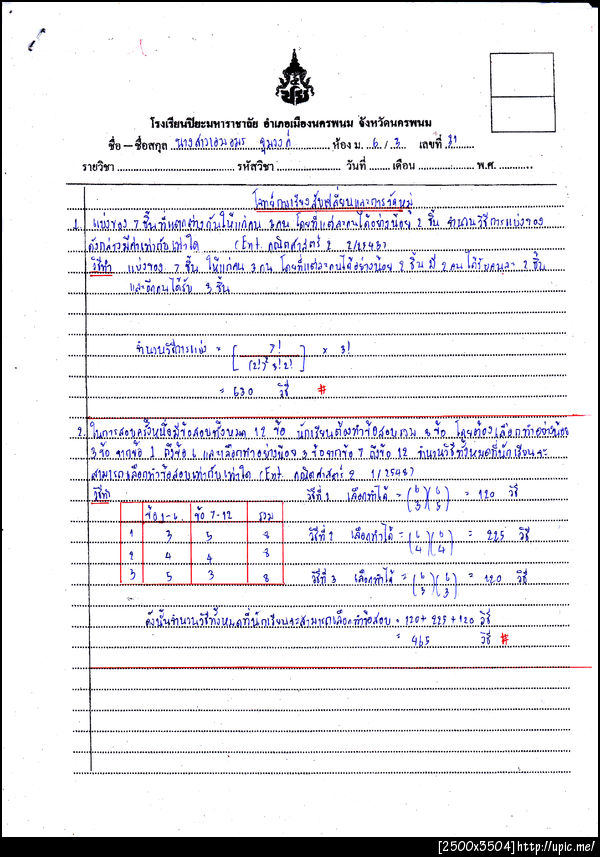 โรงเรียนปิยะมหาราชาลัย อำเภอเมืองนครพนม จังหวัดนครพนม
ชื่อ – ชื่อสกุล นางสาว ห้อง ม. 6 / 3 เลขที่
รายวิชา รหัสวิชา วันที่ เดือน พ.ศ.
โจทย์การเรียงสับเปลี่ยนและการจัดหมู่
1. แบ่งของ 7 ชิ้นที่แตกต่างกันให้แก่คน 3 คน โดยที่แต่ละคนได้อย่างน้อย 2 ชิ้น จำนวนวิธีการแบ่งของ
ดังกล่าวมีค่าเท่ากับเท่าใด (Ent. คณิตศาสตร์ 2 2/2543)
วิธีทำ แบ่งของ 7 ชิ้น ให้แก่คน 3 คน โดยที่แต่ละคนได้อย่างน้อย 2 ชิ้น มี 2 คนได้รับคนละ 2 ชิ้น
และอีกคนได้รับ 3 ชิ้น
จำนวนวิธีการแบ่ง = [ 7! / (2!)² 3! 2! ] × 3!
= 630 วิธี #
2. ในการสอบครั้งหนึ่งมีข้อสอบทั้งหมด 12 ข้อ นักเรียนต้องทำข้อสอบ 8 ข้อ โดยต้องเลือกทำอย่างน้อย
3 ข้อ จากข้อ 1 ถึงข้อ 6 และเลือกทำอย่างน้อย 3 ข้อจากข้อ 7 ถึงข้อ 12 จำนวนวิธีทั้งหมดที่นักเรียนจะ
สามารถเลือกทำข้อสอบเท่ากับเท่าใด (Ent. คณิตศาสตร์ 2 1/2543)
วิธีทำ วิธีที่ 1 เลือกทำได้ = (6 3)(6 5) = 120 วิธี
ข้อ 1-6 ข้อ 7-12 รวม
1 3 5 8 วิธีที่ 2 เลือกทำได้ = (6 4)(6 4) = 225 วิธี
2 4 4 8
3 5 3 8 วิธีที่ 3 เลือกทำได้ = (6 3)(6 3) = 120 วิธี
ดังนั้นจำนวนวิธีทั้งหมดที่นักเรียนจะสามารถเลือกทำข้อสอบ = 120 + 225 + 120 วิธี
= 465 วิธี #
[2500x3504]http://upic.me/